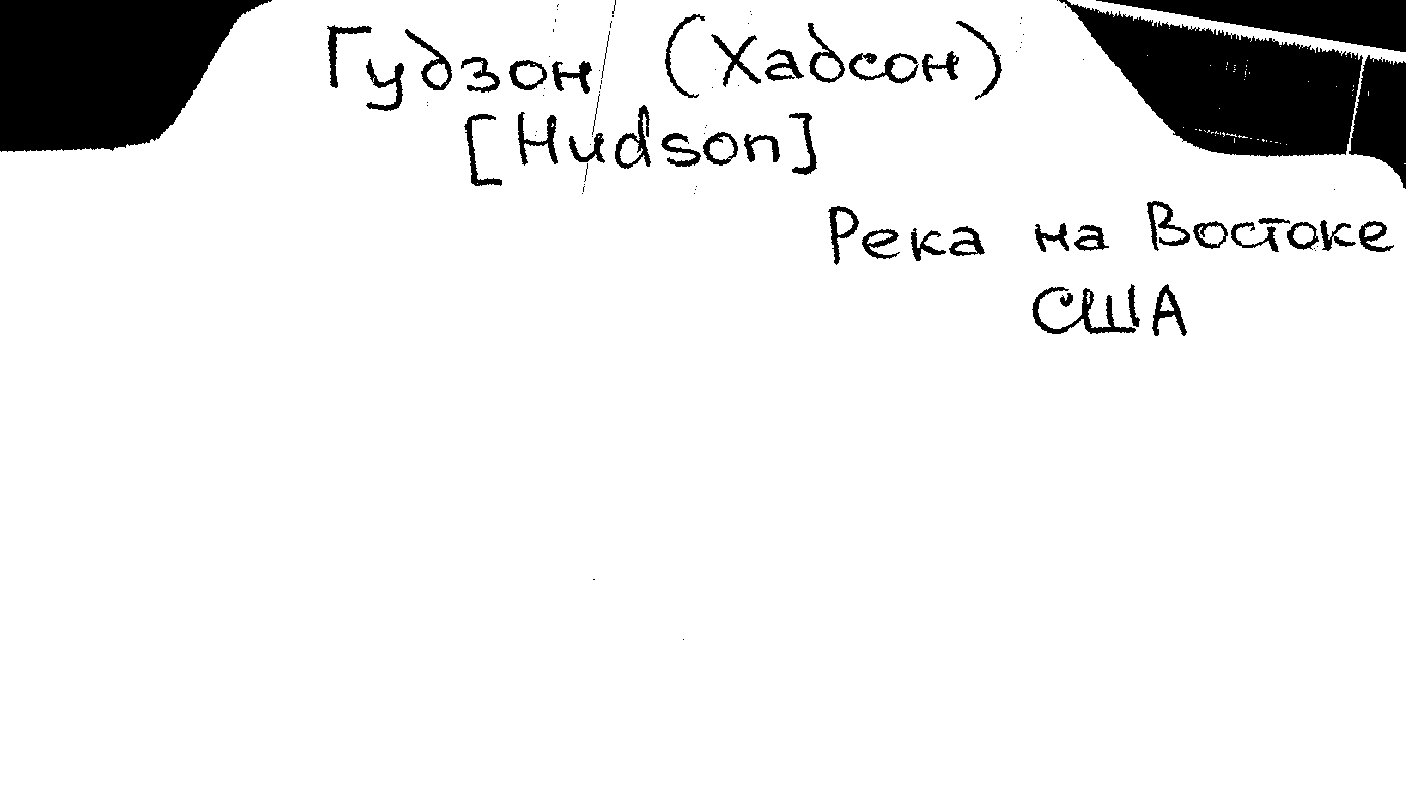 Гудзон (Хадсон)
[Hudson]
Река на Востоке
США